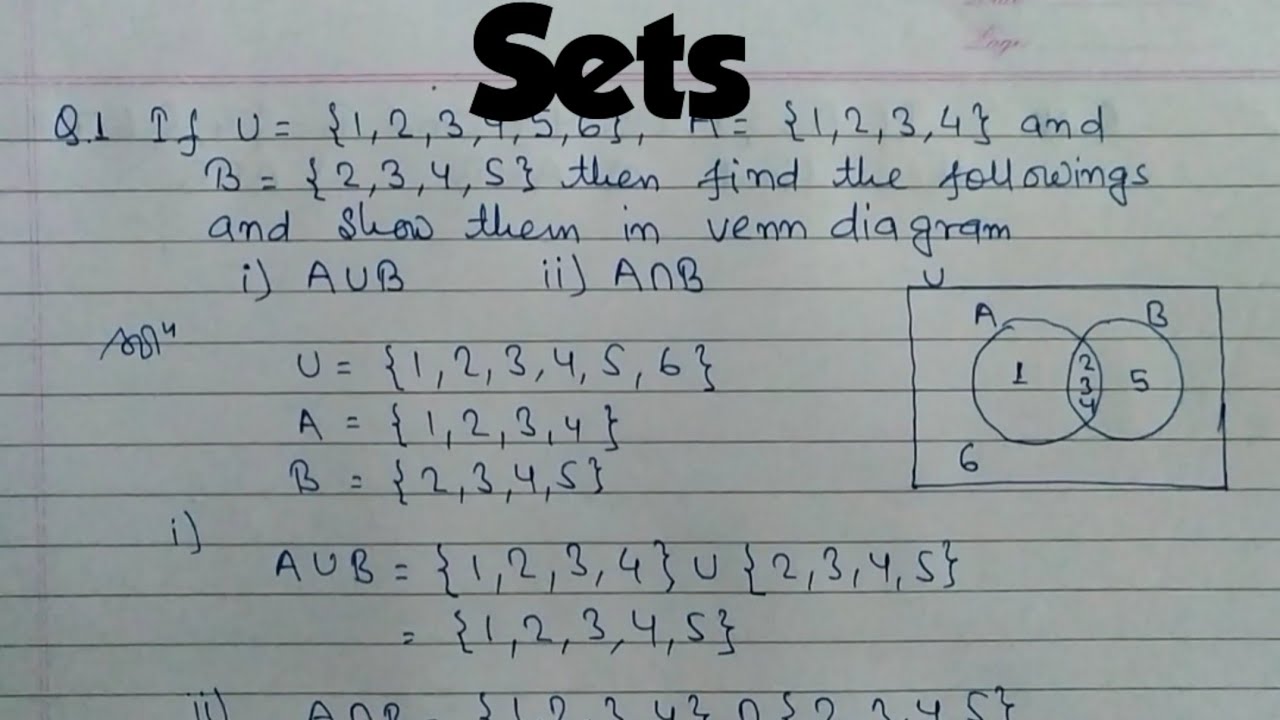 Sets
Page
Q.1 If U = {1,2,3,4,5,6}, A = {1,2,3,4} and
B = {2,3,4,5} then find the followings
and show them in venn diagram
i) A∪B ii) A∩B
U
A B
1 2 3 4 5
6
U = {1,2,3,4,5,6}
A = {1,2,3,4}
B = {2,3,4,5}
i)
A∪B = {1,2,3,4} ∪ {2,3,4,5}
= {1,2,3,4,5}
ii) A∩B = {1,2,3,4} ∩ {2,3,4,5}